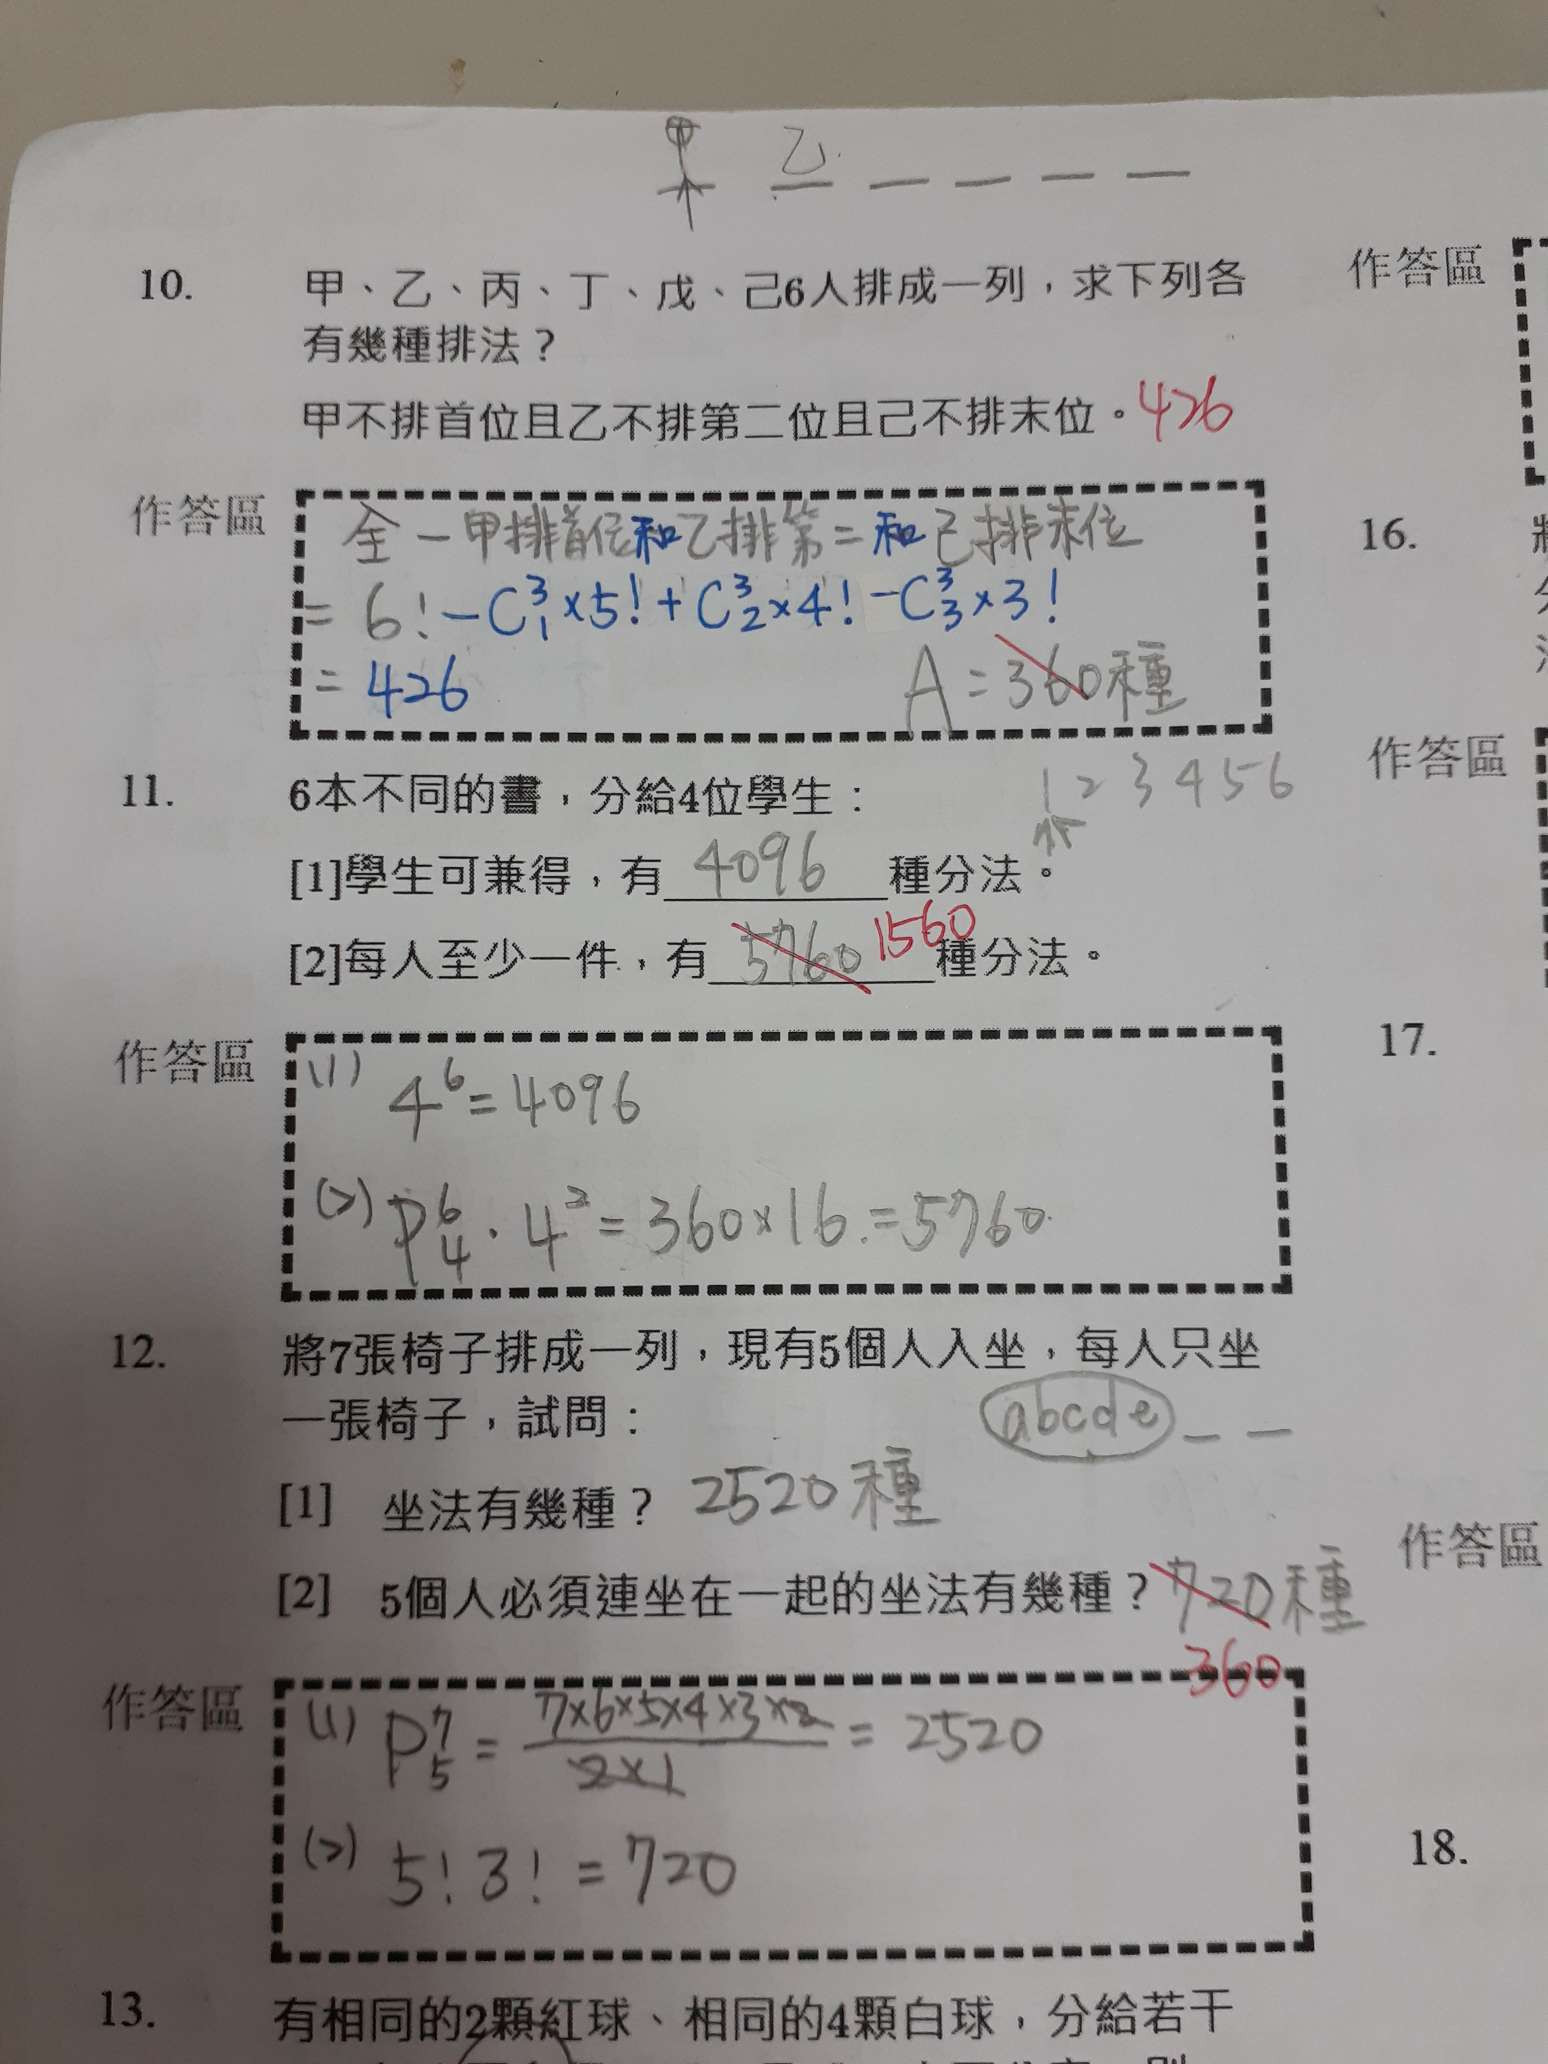 甲 乙
10. 甲、乙、丙、丁、戊、己6人排成一列，求下列各
有幾種排法？
甲不排首位且乙不排第二位且己不排末位。426
作答區
全－甲排首位和乙排第二和己排末位
= 6! - C³₁×5! + C³₂×4! - C³₃×3!
= 426
A = 360種
11. 6本不同的書，分給4位學生：
1 2 3 4 5 6
[1]學生可兼得，有 4096 種分法。
[2]每人至少一件，有 5760 1560 種分法。
作答區
(1) 4⁶ = 4096
(2) P⁶₄ · 4² = 360×16 = 5760
12. 將7張椅子排成一列，現有5個人入坐，每人只坐
一張椅子，試問：
abcde _ _
[1] 坐法有幾種？ 2520種
[2] 5個人必須連坐在一起的坐法有幾種？ 720種
360
作答區
(1) P⁷₅ = 7×6×5×4×3×2 / 2×1 = 2520
(2) 5! 3! = 720
13. 有相同的2顆紅球、相同的4顆白球，分給若干
作答區
16.
作答區
17.
作答區
18.